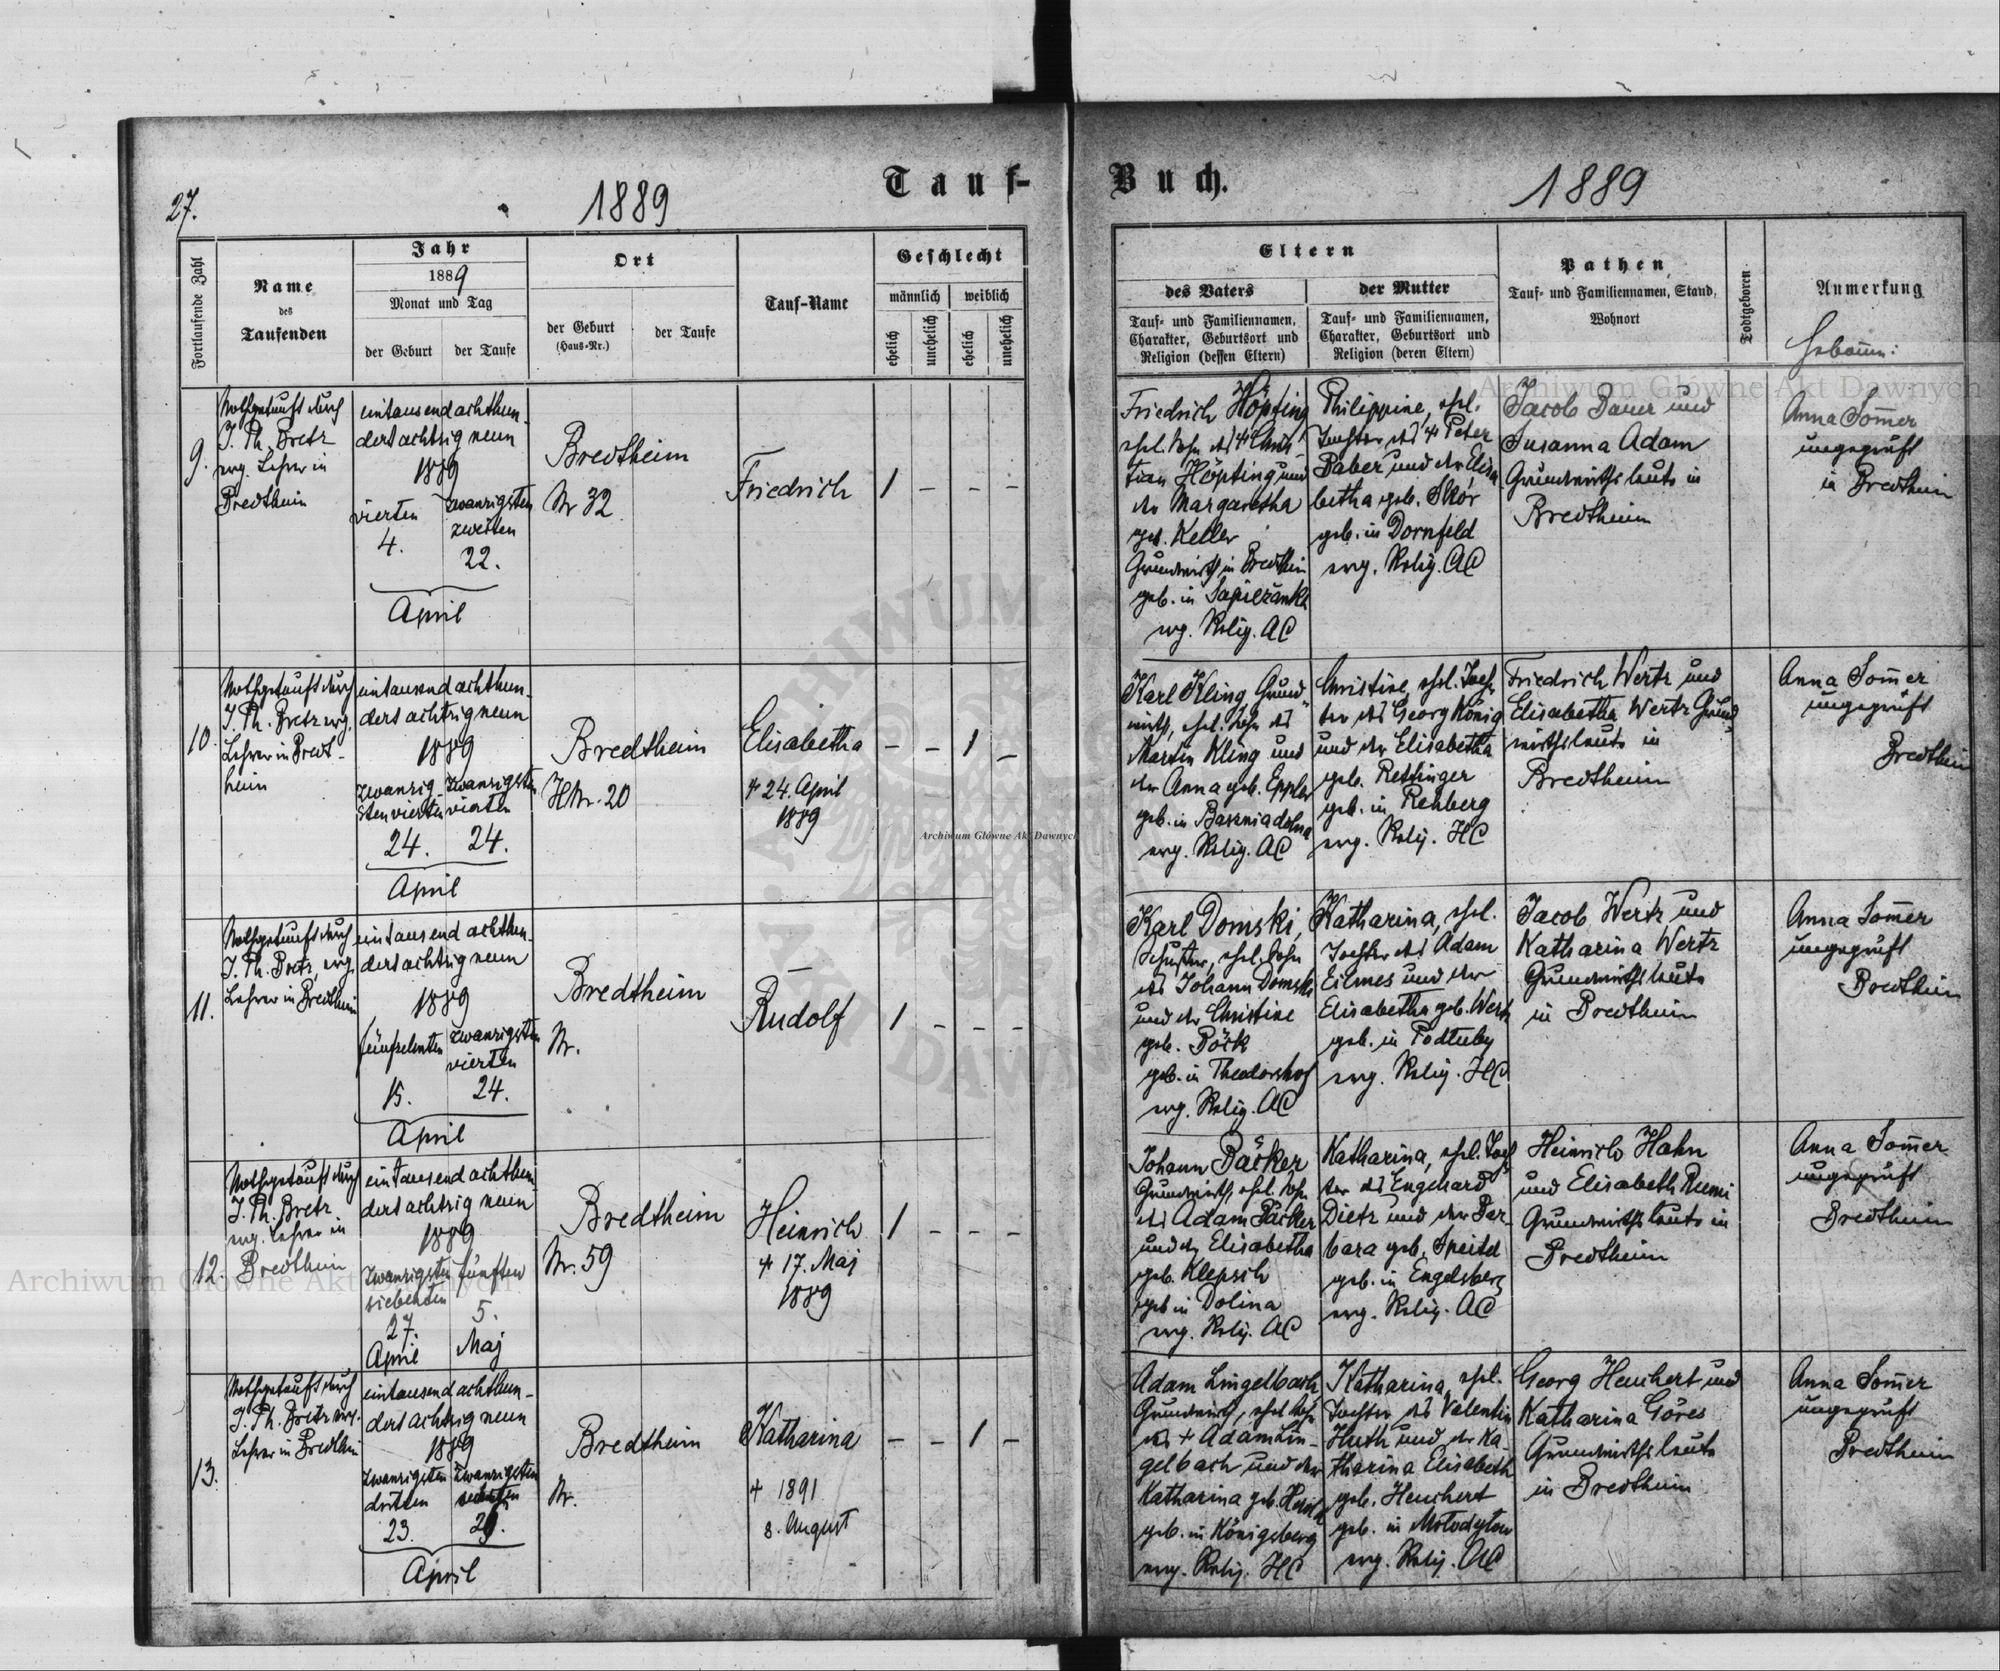 27.
1889
Tauf-
Buch.
1889
Fortlaufende Zahl
Name
des
Taufenden
Jahr
1889
Monat und Tag
der Geburt
der Taufe
Ort
der Geburt
(Haus-Nr.)
der Taufe
Tauf-Name
Geschlecht
männlich
weiblich
ehelich
unehelich
ehelich
unehelich
Eltern
des Vaters
Tauf- und Familiennamen,
Charakter, Geburtsort und
Religion (dessen Eltern)
der Mutter
Tauf- und Familiennamen,
Charakter, Geburtsort und
Religion (deren Eltern)
Pathen
Tauf- und Familiennamen, Stand,
Wohnort
Todtgeboren
Anmerkung
Hebamm:
9.
Nothgetauft durch
J. Ph. Bretz
evg. Lehrer in
Bredtheim
eintausend achthun-
dert achtzig neun
1889
vierten
4.
zwanzigsten
zweiten
22.
April
Bredtheim
Nr 32
Friedrich
1 – – –
Friedrich Höpfing
ehel. Sohn des + Chris-
tian Höpfing und
der Margaretha
geb. Keller
Grundwirth in Bredtheim
geb. in
evg. Relig. AC
Philippine, ehel.
Tochter des + Peter
Daber und der Elisa
betha geb. Skór
geb. in Dornfeld
evg. Relig. AC
Jacob Daum und
Susanna Adam
Grundwirthsleute in
Bredtheim
Anna Som̄er
ungeprüft
in Bredtheim
10.
Nothgetauft durch
J. Ph. Bretz evg.
Lehrer in Bredt-
heim
eintausend achthun-
dert achtzig neun
1889
zwanzig-
sten vierten
24.
zwanzigsten
vierten
24.
April
Bredtheim
HNr. 20
Elisabetha
+ 24. April
1889
– – 1 –
Karl Kling Grund-
wirth, ehel. Sohn des
Martin Kling und
der Anna geb. Eppler
geb. in
evg. Relig. AC
Christine, ehel. Toch-
ter des Georg König
und der Elisabetha
geb. Rettinger
geb. in Rehberg
evg. Relig. HC
Friedrich Wertz und
Elisabetha Wertz Grund-
wirthsleute in
Bredtheim
Anna Som̄er
ungeprüft
Bredtheim
11.
Nothgetauft durch
J. Ph. Bretz, evg.
Lehrer in Bredtheim
eintausend achthun-
dert achtzig neun
1889
fünfzehnten
15.
zwanzigsten
vierten
24.
April
Bredtheim
Nr.
Rudolf
1 – – –
Karl Domski,
Schuster, ehel. Sohn
des Johann Domski
und der Christine
geb. Böck
geb. in Theodorshof
evg. Relig. AC
Katharina, ehel.
Tochter des Adam
Eilmes und der
Elisabetha geb. Wertz
geb. in Podluby
evg. Relig. HC
Jacob Wertz und
Katharina Wertz
Grundwirthsleute
in Bredtheim
Anna Som̄er
ungeprüft
Bredtheim
12.
Nothgetauft durch
J. Ph. Bretz
evg. Lehrer in
Bredtheim
eintausend achthun-
dert achtzig neun
1889
zwanzigsten
siebenten
27.
April
fünften
5.
Maj
Bredtheim
Nr. 59
Heinrich
+ 17. Maj
1889
1 – – –
Johann Bäcker
Grundwirth, ehel. Sohn
des Adam Bäcker
und der Elisabetha
geb. Klepsch
geb in Dolina
evg. Relig. AC
Katharina, ehel. Toch-
ter des Engehard
Dietz und der Bar-
bara geb. Speitel
geb. in Engelsberg
evg. Relig. AC
Heinrich Hahn
und Elisabeth Rumi
Grundwirthsleute in
Bredtheim
Anna Som̄er
ungeprüft
Bredtheim
13.
Nothgetauft durch
J. Ph. Bretz evg.
Lehrer in Bredtheim
eintausend achthun-
dert achtzig neun
1889
zwanzigsten
dritten
23.
zwanzigsten
April
Bredtheim
Nr.
Katharina
+ 1891
8. August
– – 1 –
Adam Lingelbach,
Grundwirth, ehel Sohn
des + Adam Lin-
gelbach und der
Katharina geb.
geb. in Königsberg
evg. Relig. HC
Katharina, ehel.
Tochter des Valentin
Huth und der Ka-
tharina Elisabeth
geb. Heuchert
geb. in
evg. Relig. AC
Georg Heuchert und
Katharina Göres
Grundwirthsleute
in Bredtheim
Anna Som̄er
ungeprüft
Bredtheim
Archiwum Główne Akt Dawnych
Archiwum Główne Akt Dawnych
Archiwum Główne Akt Dawnych